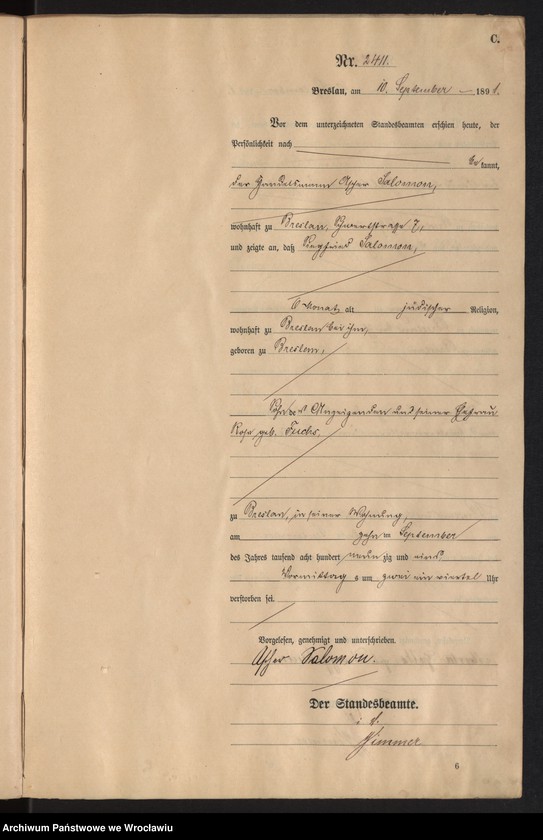 C.
Nr. 2411.
Breslau, am 10. September 1891.
Vor dem unterzeichneten Standesbeamten erschien heute, der
Persönlichkeit nach
be kannt,
der Handelsmann Ascher Salomon,
wohnhaft zu Breslau, Schwertstraße 7,
und zeigte an, daß Siegfried Salomon,
6 Monat alt jüdischer Religion,
wohnhaft zu Breslau bei ihm,
geboren zu Breslau,
Sohn des Anzeigenden und seiner Ehefrau
Rosa geb. Fuchs,
zu Breslau, in seiner Wohnung,
am zehn ten September
des Jahres tausend acht hundert neun zig und eins
Vormittag s um zwei ein viertel Uhr
verstorben sei.
Vorgelesen, genehmigt und unterschrieben.
Ascher Salomon.
Der Standesbeamte.
6
Archiwum Państwowe we Wrocławiu